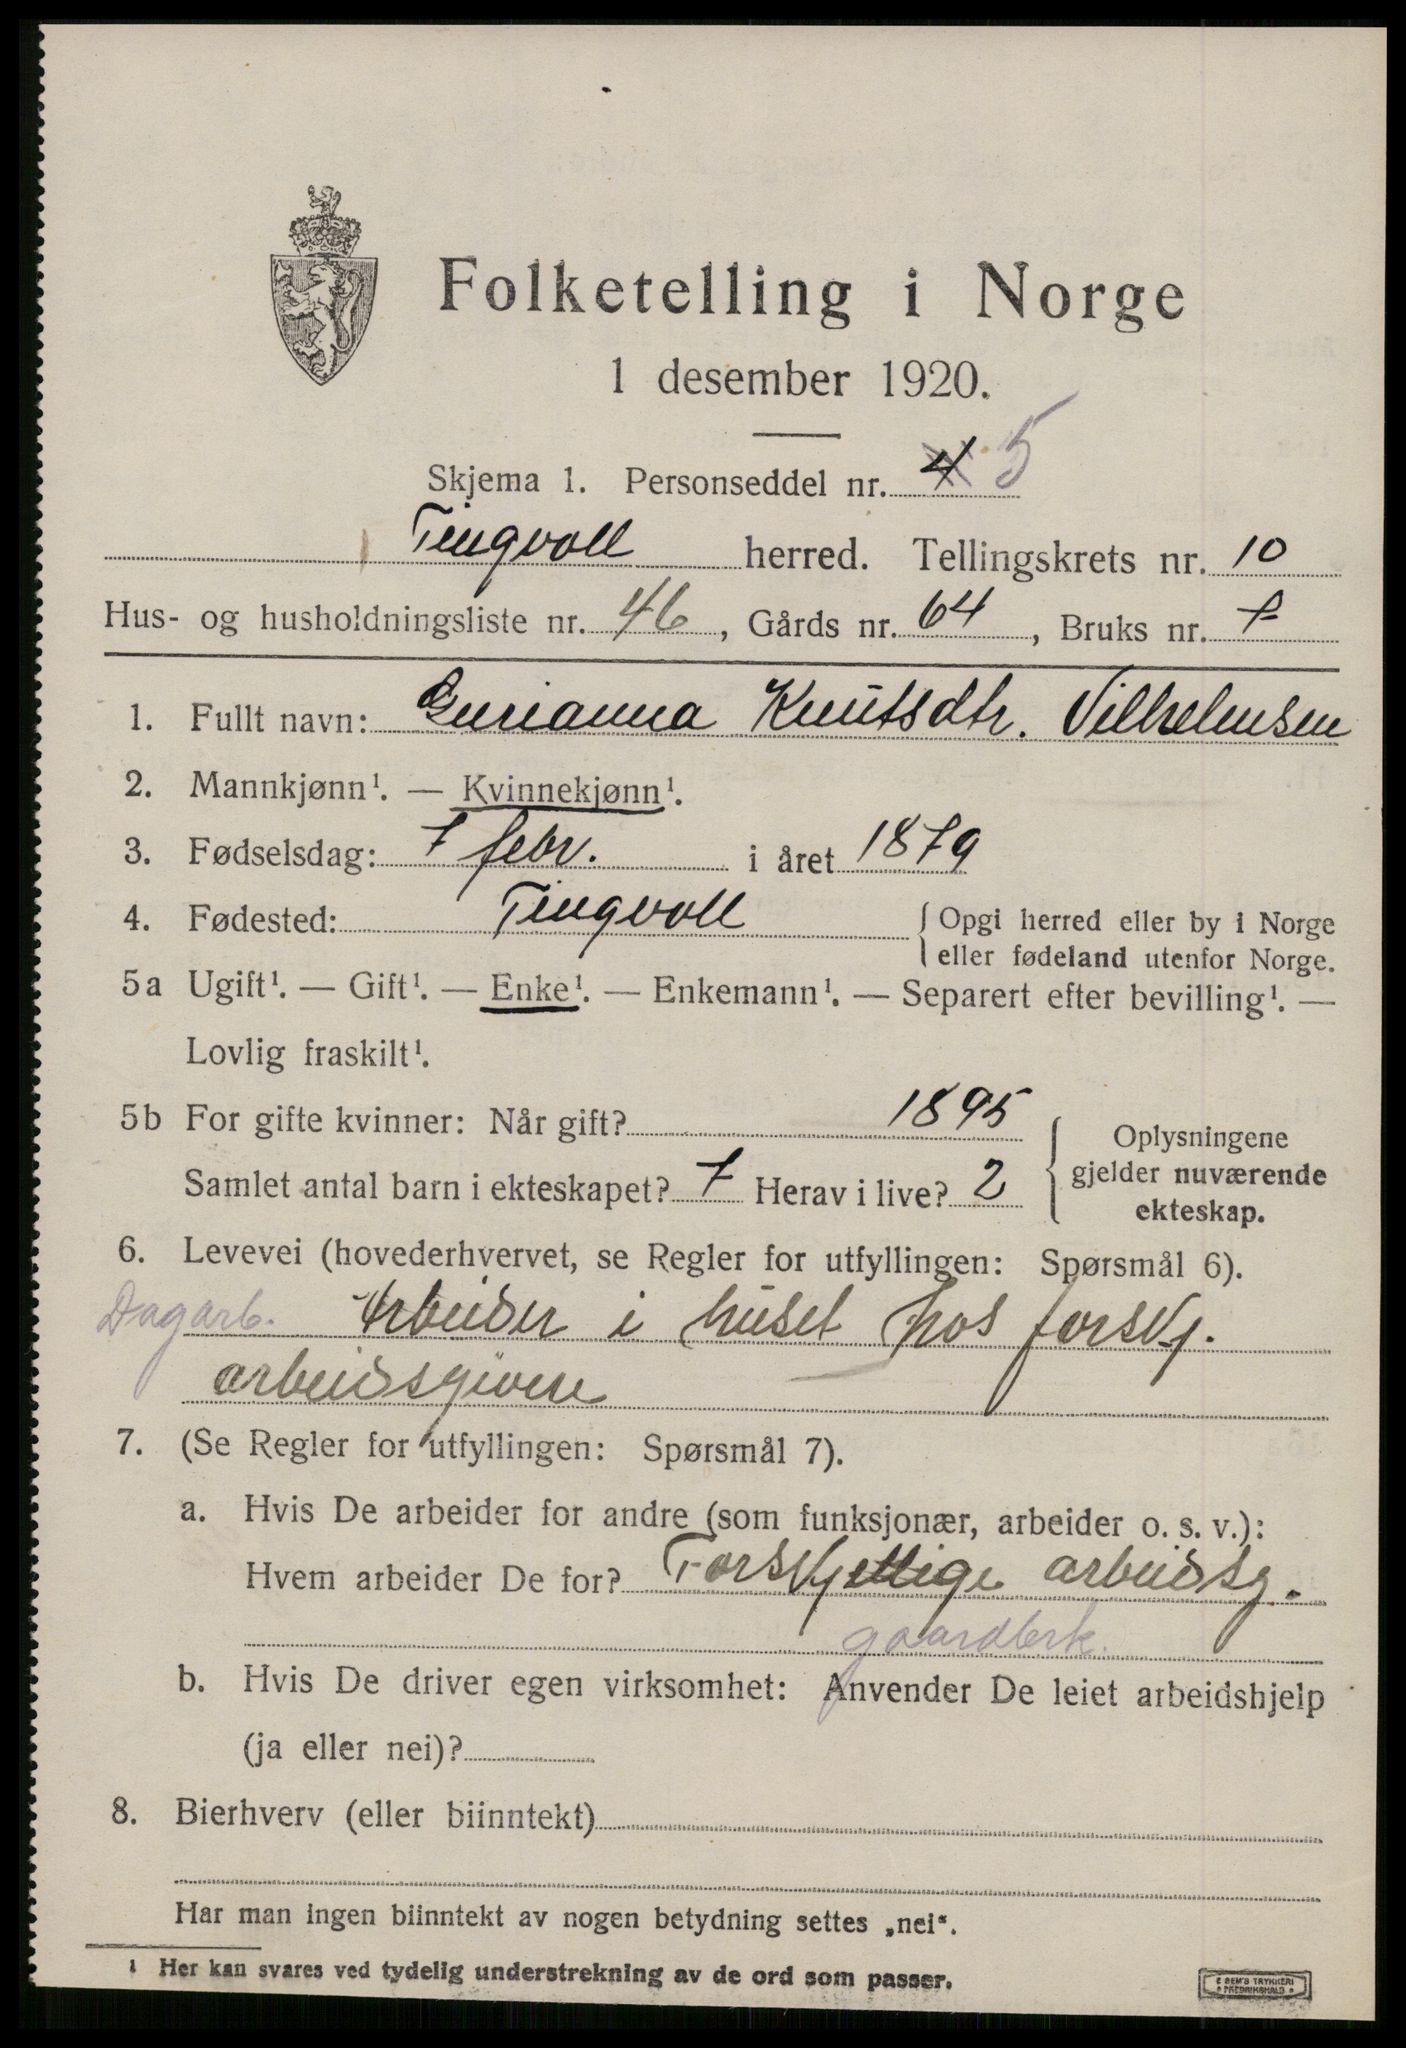 Folketelling i Norge
1 desember 1920.
Skjema 1. Personseddel nr. 4 5
Tingvoll herred. Tellingskrets nr. 10
Hus- og husholdningsliste nr. 46, Gårds nr. 64, Bruks nr.
1. Fullt navn: Gurianna Knutsdtr. Vilhelmsen
2. Mannkjønn¹. — Kvinnekjønn¹.
3. Fødselsdag: 7 febr. i året 1879
4. Fødested: Tingvoll { Opgi herred eller by i Norge
eller fødeland utenfor Norge.
5a Ugift¹. — Gift¹. — Enke¹. — Enkemann¹. — Separert efter bevilling¹. —
Lovlig fraskilt¹.
5b For gifte kvinner: Når gift? 1895
Samlet antal barn i ekteskapet? 7 Herav i live? 2
{ Oplysningene
gjelder nuværende
ekteskap.
6. Levevei (hovederhvervet, se Regler for utfyllingen: Spørsmål 6).
Dagarb. Arbeider i huset hos forskj.
arbeidsgivere
7. (Se Regler for utfyllingen: Spørsmål 7).
a. Hvis De arbeider for andre (som funksjonær, arbeider o. s. v.):
Hvem arbeider De for? Forskjellige arbeidsg.
gaardbrk.
b. Hvis De driver egen virksomhet: Anvender De leiet arbeidshjelp
(ja eller nei)?
8. Bierhverv (eller biinntekt)
Har man ingen biinntekt av nogen betydning settes „nei“.
¹ Her kan svares ved tydelig understrekning av de ord som passer.
E SEM'S TRYKKERI
FREDRIKSHALD